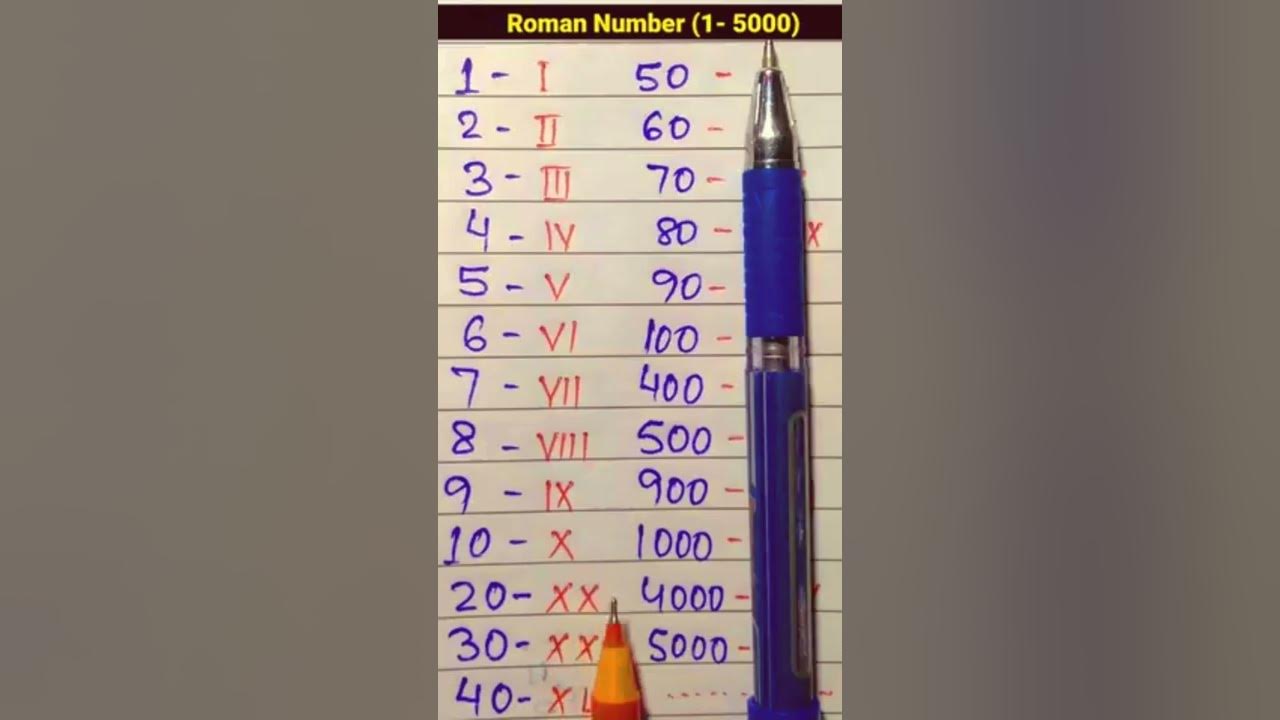 Roman Number (1- 5000)
1 - I
2 - II
3 - III
4 - IV
5 - V
6 - VI
7 - VII
8 - VIII
9 - IX
10 - X
20 - XX
30 - XX
40 - XL
50 -
60 -
70 -
80 - X
90 -
100 -
400 -
500 -
900 -
1000 -
4000 -
5000 -